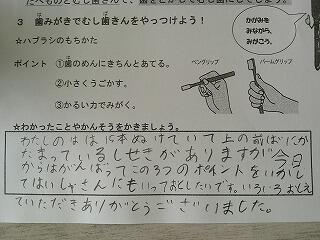 たべものとむし歯
3 歯みがきでむし歯きんをやっつけよう！
かがみを
みながら、
みがこう。
☆ハブラシのもちかた
ポイント ①歯のめんにきちんとあてる。
ペングリップ
パームグリップ
②小さくうごかす。
③かるい力でみがく。
☆わかったことやかんそうをかきましょう。
わたしのははに本ぬけていて上の前ばにか
たまっているしせきがありますが今日
からはがんばってこの3つのポイントをいかし
てはいしゃさんにもいっておとしたいです。いろいろおしえ
ていただきありがとうございました。